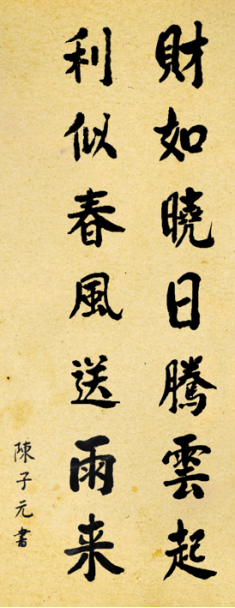 財如曉日騰雲起
利似春風送雨来
陳子元書